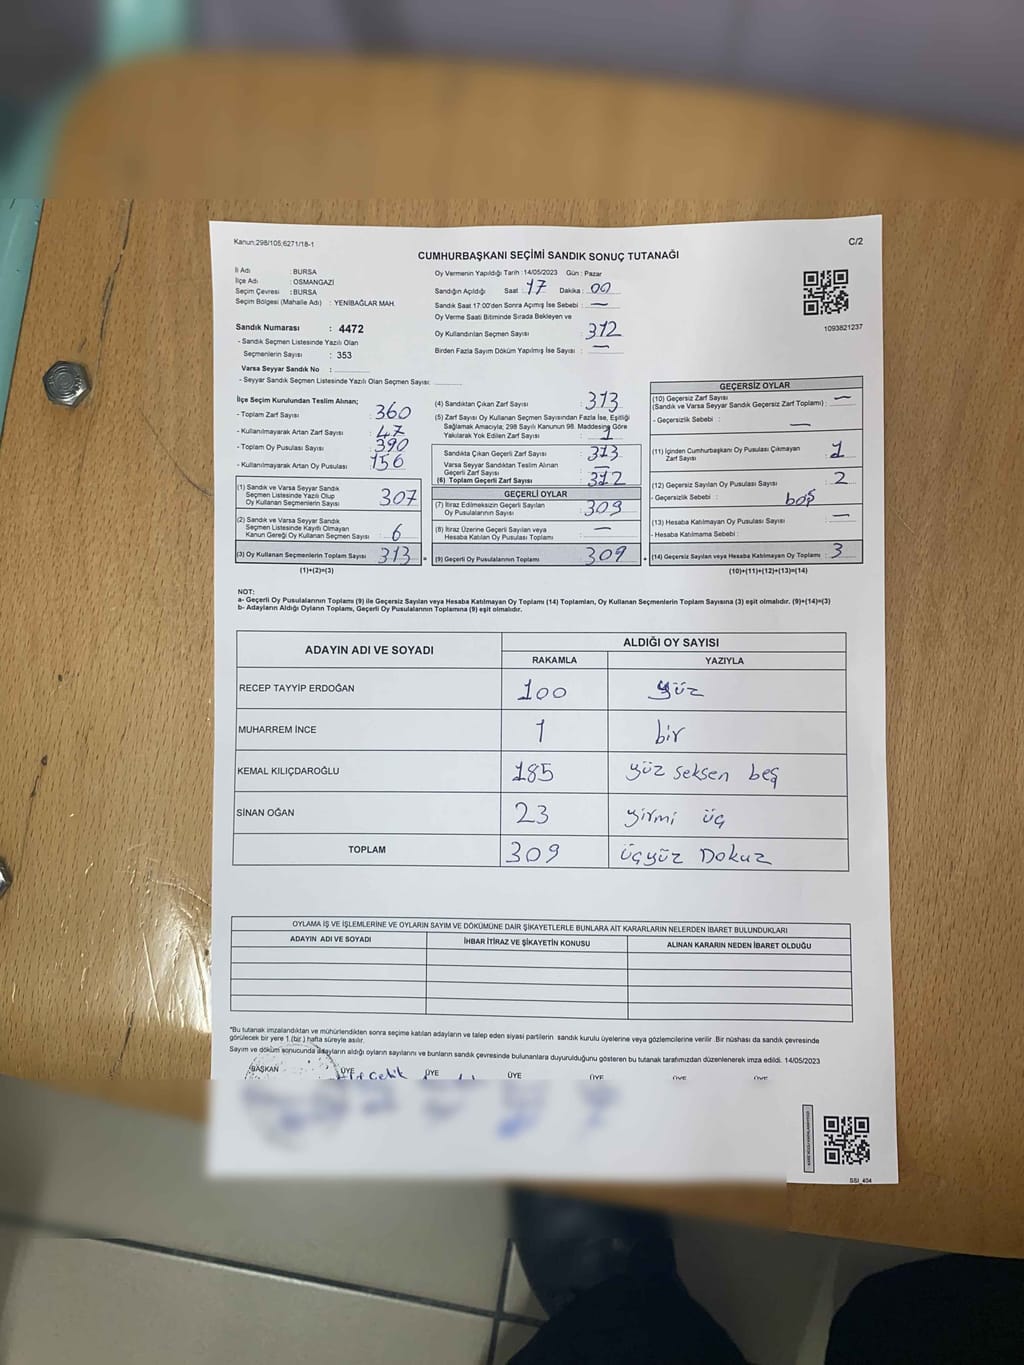 Kanun;298/105;6271/18-1
C/2
CUMHURBAŞKANI SEÇİMİ SANDIK SONUÇ TUTANAĞI
İl Adı : BURSA
İlçe Adı : OSMANGAZİ
Seçim Çevresi : BURSA
Seçim Bölgesi (Mahalle Adı) : YENİBAĞLAR MAH.
Sandık Numarası : 4472
- Sandık Seçmen Listesinde Yazılı Olan
Seçmenlerin Sayısı : 353
Varsa Seyyar Sandık No :
- Seyyar Sandık Seçmen Listesinde Yazılı Olan Seçmen Sayısı:
Oy Vermenin Yapıldığı Tarih : 14/05/2023 Gün : Pazar
Sandığın Açıldığı Saat : 17 Dakika : 00
Sandık Saat 17:00'den Sonra Açımış İse Sebebi : —
Oy Verme Saati Bitiminde Sırada Bekleyen ve
Oy Kullandırılan Seçmen Sayısı : 312
Birden Fazla Sayım Döküm Yapılmış İse Sayısı : —
1093821237
İlçe Seçim Kurulundan Teslim Alınan;
- Toplam Zarf Sayısı : 360
- Kullanılmayarak Artan Zarf Sayısı : 47
- Toplam Oy Pusulası Sayısı : 390
- Kullanılmayarak Artan Oy Pusulası : 156
(1) Sandık ve Varsa Seyyar Sandık
Seçmen Listesinde Yazılı Olup
Oy Kullanan Seçmenlerin Sayısı : 307
(2) Sandık ve Varsa Seyyar Sandık
Seçmen Listesinde Kayıtlı Olmayan
Kanun Gereği Oy Kullanan Seçmen Sayısı : 6
(3) Oy Kullanan Seçmenlerin Toplam Sayısı : 313
(1)+(2)=(3)
(4) Sandıktan Çıkan Zarf Sayısı : 313
(5) Zarf Sayısı Oy Kullanan Seçmen Sayısından Fazla İse, Eşitliği
Sağlamak Amacıyla; 298 Sayılı Kanunun 98. Maddesine Göre
Yakılarak Yok Edilen Zarf Sayısı : 1
Sandıkta Çıkan Geçerli Zarf Sayısı : 313
Varsa Seyyar Sandıktan Teslim Alınan
Geçerli Zarf Sayısı : —
(6) Toplam Geçerli Zarf Sayısı : 312
GEÇERLİ OYLAR
(7) İtiraz Edilmeksizin Geçerli Sayılan
Oy Pusulalarının Sayısı : 309
(8) İtiraz Üzerine Geçerli Sayılan veya
Hesaba Katılan Oy Pusulası Toplamı : —
= (9) Geçerli Oy Pusulalarının Toplamı : 309
GEÇERSİZ OYLAR
(10) Geçersiz Zarf Sayısı
(Sandık ve Varsa Seyyar Sandık Geçersiz Zarf Toplamı) : —
- Geçersizlik Sebebi : —
(11) İçinden Cumhurbaşkanı Oy Pusulası Çıkmayan
Zarf Sayısı : 1
(12) Geçersiz Sayılan Oy Pusulası Sayısı : 2
- Geçersizlik Sebebi : boş
(13) Hesaba Katılmayan Oy Pusulası Sayısı : —
- Hesaba Katılmama Sebebi :
+ (14) Geçersiz Sayılan veya Hesaba Katılmayan Oy Toplamı : 3
(10)+(11)+(12)+(13)=(14)
NOT:
a- Geçerli Oy Pusulalarının Toplamı (9) ile Geçersiz Sayılan veya Hesaba Katılmayan Oy Toplamı (14) Toplamları, Oy Kullanan Seçmenlerin Toplam Sayısına (3) eşit olmalıdır. (9)+(14)=(3)
b- Adayların Aldığı Oyların Toplamı, Geçerli Oy Pusulalarının Toplamına (9) eşit olmalıdır.
ADAYIN ADI VE SOYADI ALDIĞI OY SAYISI
RAKAMLA YAZIYLA
RECEP TAYYİP ERDOĞAN 100 yüz
MUHARREM İNCE 1 bir
KEMAL KILIÇDAROĞLU 185 yüz seksen beş
SİNAN OĞAN 23 yirmi üç
TOPLAM 309 üçyüz Dokuz
OYLAMA İŞ VE İŞLEMLERİNE VE OYLARIN SAYIM VE DÖKÜMÜNE DAİR ŞİKAYETLERLE BUNLARA AİT KARARLARIN NELERDEN İBARET BULUNDUKLARI
ADAYIN ADI VE SOYADI İHBAR İTİRAZ VE ŞİKAYETİN KONUSU ALINAN KARARIN NEDEN İBARET OLDUĞU
*Bu tutanak imzalandıktan ve mühürlendikten sonra seçime katılan adayların ve talep eden siyasi partilerin sandık kurulu üyelerine veya gözlemcilerine verilir. Bir nüshası da sandık çevresinde
görülecek bir yere 1 (bir) hafta süreyle asılır.
Sayım ve döküm sonucunda adayların aldığı oyların sayılarını ve bunların sandık çevresinde bulunanlara duyurulduğunu gösteren bu tutanak tarafımızdan düzenlenerek imza edildi. 14/05/2023
BAŞKAN ÜYE ÜYE ÜYE ÜYE ÜYE ÜYE
Çelik
SSI_404